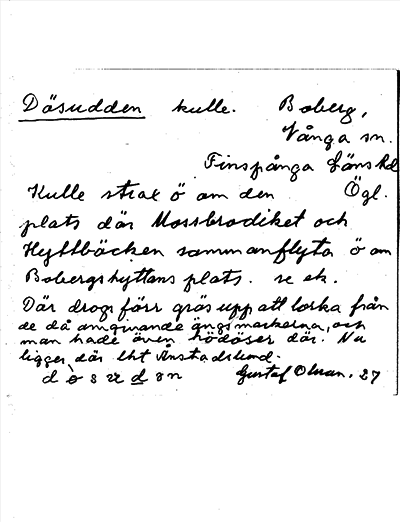 Dösudden kulle. Boberg,
Vånga sn.
Finspånga Länshd
Kulle strax ö om den Ögl.
plats där Mossbrodiket och
Hyttbäcken sammanflyta ö om
Bobergshyttans plats. se ek.
Där drogs förr gräs upp att torka från
de då omgivande ängsmarkerna, och
man hade även hödöser där. Nu
ligger där
Gustaf Olsson. 27